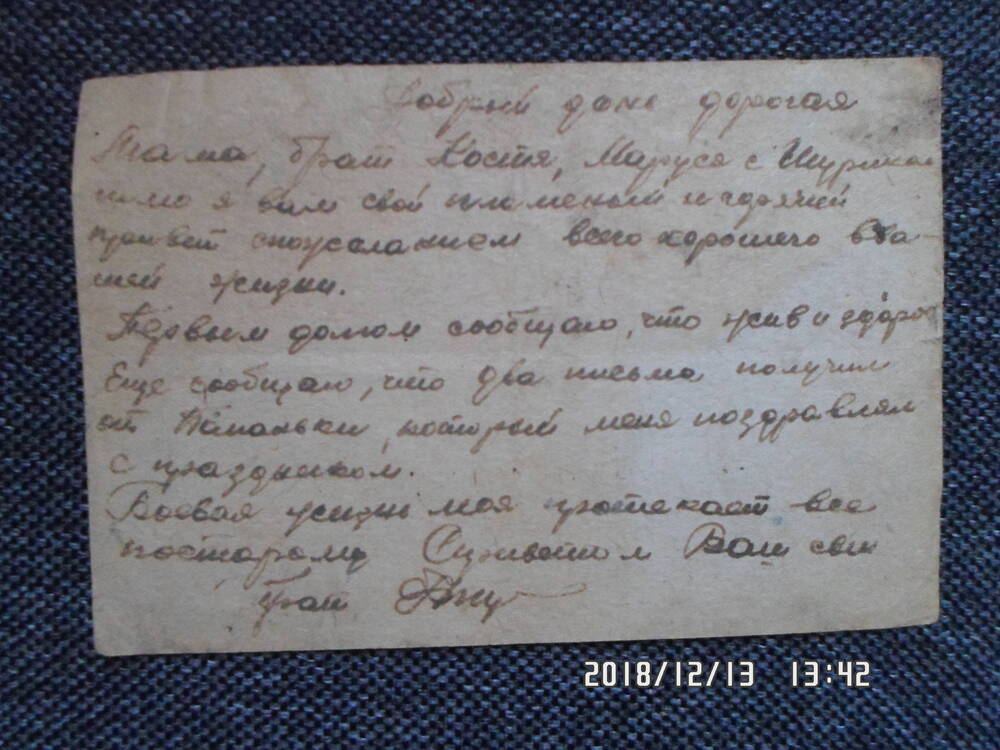 Добрый день дорогая
Мама, брат Костя, Маруся с Шуриком
шлю я вам свой пламеный и горячий
привет спожеланием всего хорошего вва-
шей жизни.
Первым долгом сообщаю, что жив и здоров
Еще сообщаю, что два письма получил
от который меня поздравлял
с праздником.
Боевая жизнь моя протекает все
постарому Сприветом Ваш сын
брат
2018/12/13 13:42